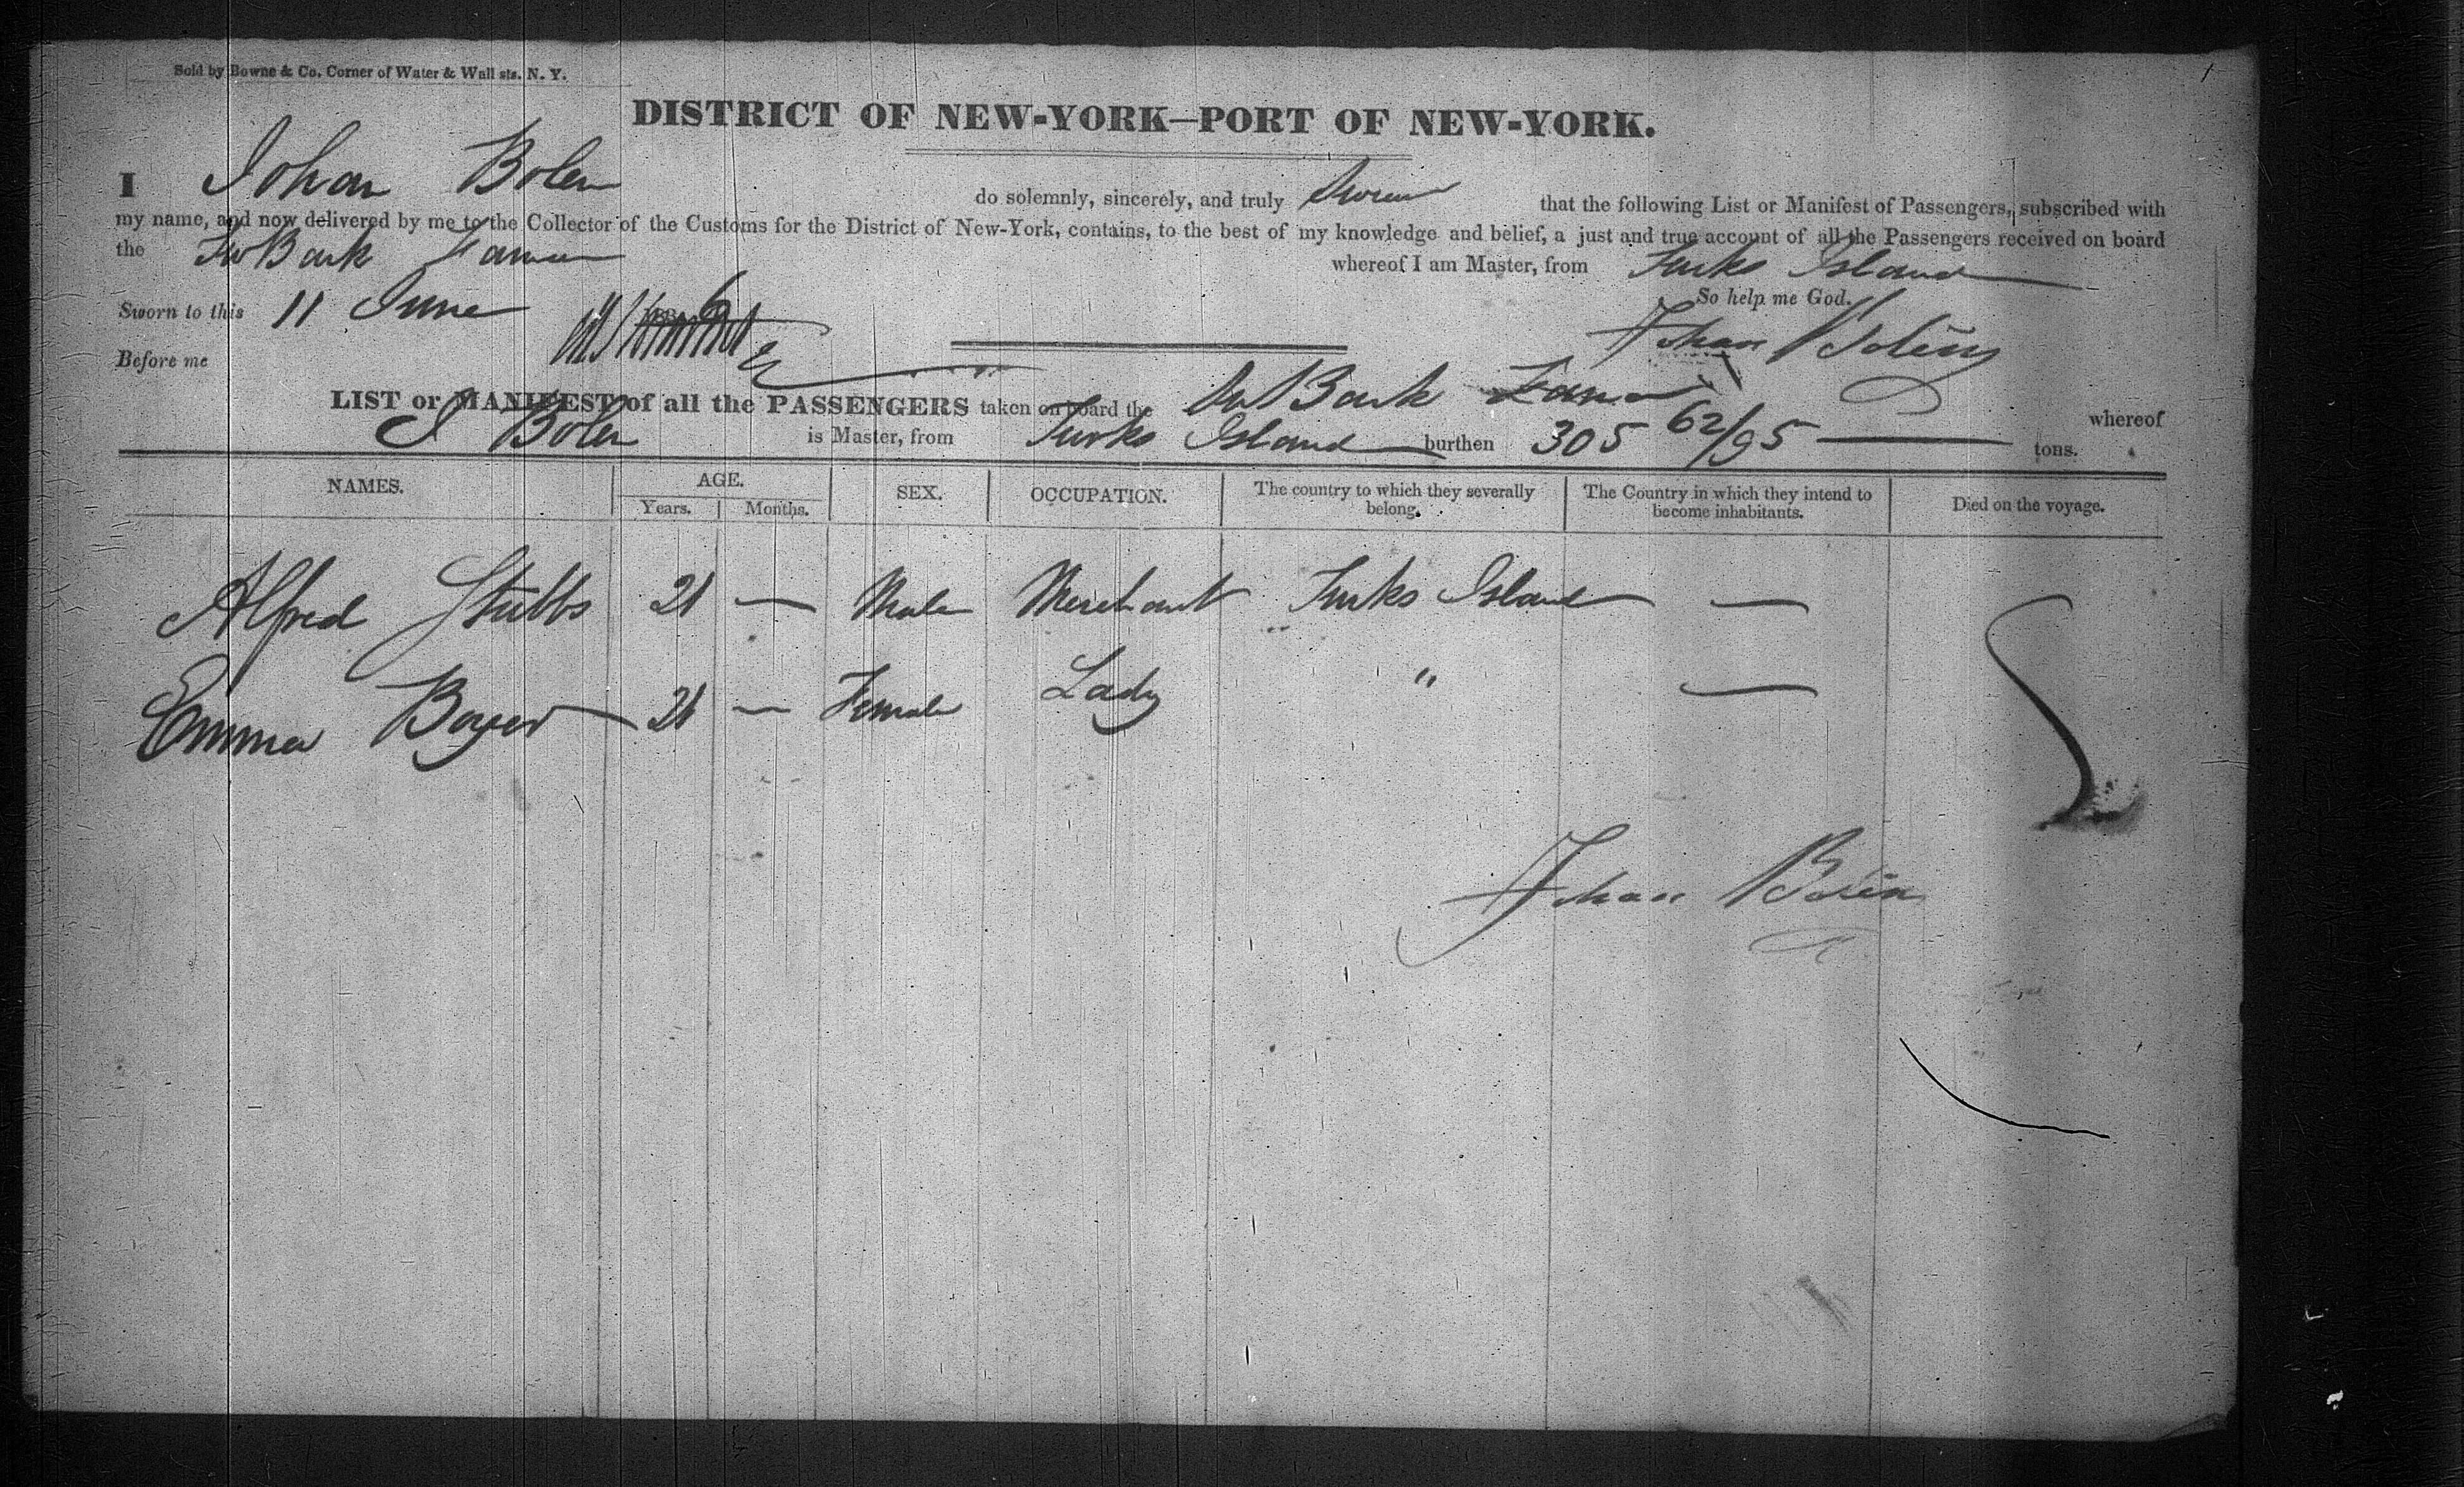 Sold by Bowne & Co. Corner of Water & Wall sts. N. Y.
DISTRICT OF NEW-YORK—PORT OF NEW-YORK.
I Johan Bolen do solemnly, sincerely, and truly Swear that the following List or Manifest of Passengers, subscribed with
my name, and now delivered by me to the Collector of the Customs for the District of New-York, contains, to the best of my knowledge and belief, a just and true account of all the Passengers received on board
the Bark whereof I am Master, from Turks Island
So help me God.
Sworn to this 11 June
Johan
Before me
LIST or MANIFEST of all the PASSENGERS taken on board the Bark whereof
J Bolen is Master, from Turks Island burthen 305 62/95 tons.
NAMES. AGE. SEX. OCCUPATION. The country to which they severally belong. The Country in which they intend to become inhabitants. Died on the voyage.
Years. Months.
Alfred Stubbs 21 — Male Merchant Turks Island —
Emma Boyer 21 — Female Lady " —
Johan